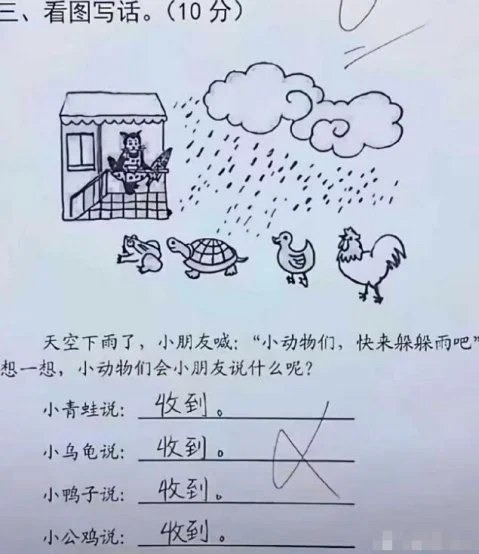 三、看图写话。（10分）
天空下雨了，小朋友喊：“小动物们，快来躲躲雨吧”
想一想，小动物们会小朋友说什么呢？
小青蛙说：收到。
小乌龟说：收到。
小鸭子说：收到。
小公鸡说：收到。